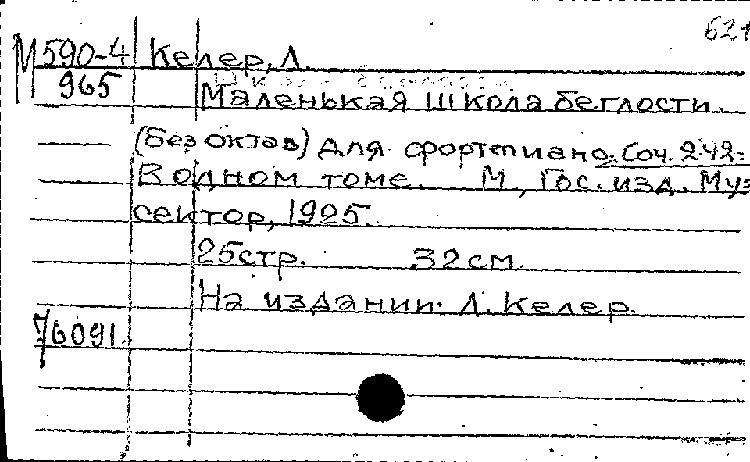 621
М590-4 Келер, Л.
965
Маленькая школа беглости.
(без октав) для фортепиано. Соч. 242.
В одном томе. М., Гос. изд. Муз
сектор, 1925.
25стр. 32см
На издании: Л. Келер.
76091